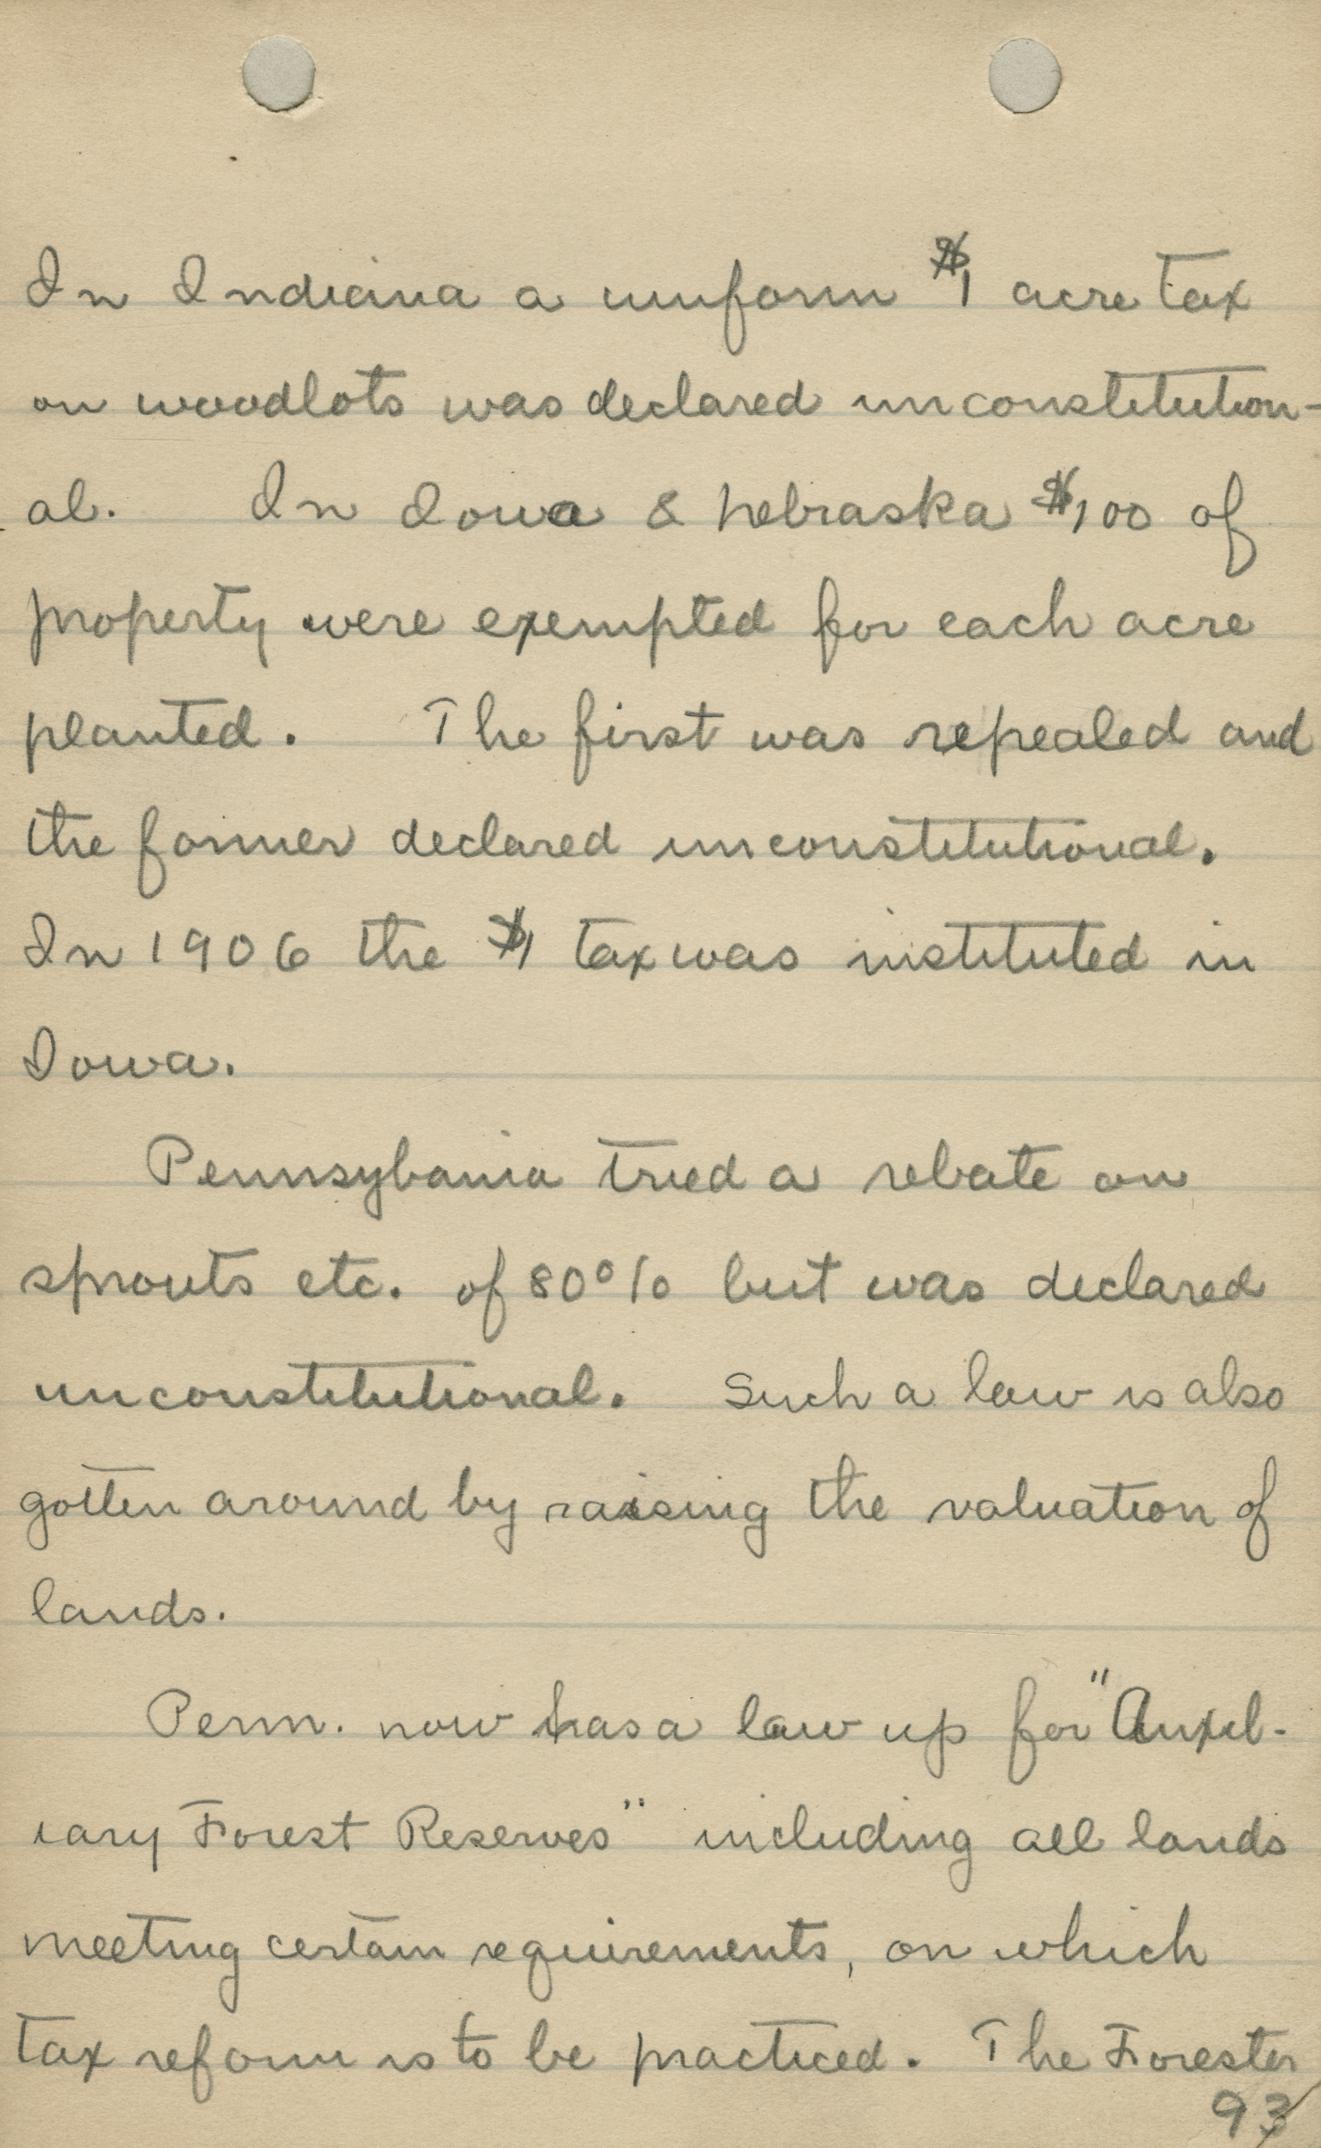 In Indiana a uniform $1 acre tax
on woodlots was declared unconstitution-
al. In Iowa & Nebraska $100 of
property were exempted for each acre
planted. The first was repealed and
the former declared unconstitutional.
In 1906 the $1 tax was instituted in
Iowa.
Pennsylvania tried a rebate on
sprouts etc. of 80% but was declared
unconstitutional. Such a law is also
gotten around by raising the valuation of
lands.
Penn. now has a law up for "Auxil-
iary Forest Reserves" including all lands
meeting certain requirements, on which
tax reform is to be practiced. The Forester
93